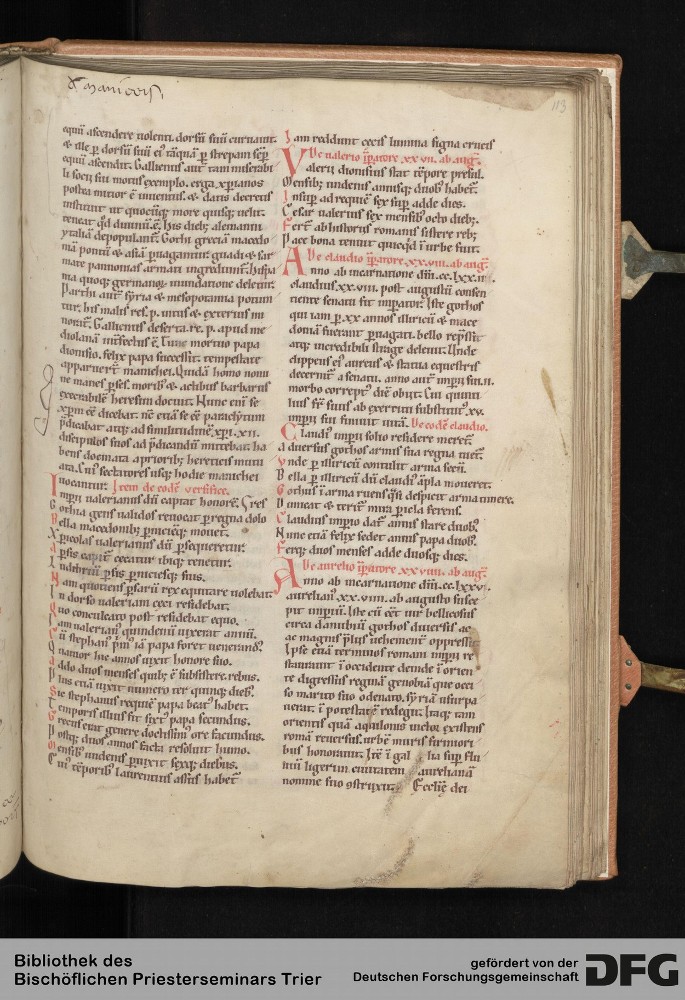 113
equū ascendere uolenti. dorsū suū curuauit.
& ille ꝑ dorsū suū ei᷒ tāquā ꝑ strepam sēꝑ
equū ascendit. Gallienus aut̄ tam miserabi
li socii sui motus exemplo. erga xp̄ianos
postea mitior ē inuentus. & datis decretis
instituit ut quocūq; more quisq; uelit.
teneat qd̓ diuinū.ē. His dieb; alemanni
ytaliā depopulant̄. Gothi greciā macedo
niā pontū & asiā ꝑuagantur. quadi & sar
mate pannonias armati ingrediunt̄. hispa
nia quoq; germanor̄ inundatione deletur.
Parthi aut̄ syria & mesopotamia potiun
tur. his malis res.p. intus & exterius in
Gallienus deserta.re.p. apud me
diolanū int̄fectus ē. Tunc mortuo papa
dionisio. felix papa successit. tempestate
apparuert̄ manichei. Quidā homo nomi
ne manes ꝑses. morib᷒ & actibus barbarus
execrabilē heresim docuit. Nunc eni se
xp̄m eē dicebat. nc̄ etiā se eē paraclytum
p̄dicabat atq; ad similitudinē xp̄i .xii.
discipulos suos ad p̄dicandū mittebat. ha
bens docmata a priorib; hereticis mutu
ata. Cui᷒ sectatores usq; hodie manichei
uocantur. Item de eodē versifice.
Imperii ualerianus dū captat honorē. Gres
Gothia gens ualidos reuocat ꝑ regna dolo
Bella macedonib; ꝑniciēq; mouet.
Xpicolas ualerianus dū ꝑsequeretur.
A ꝑsis capt᷒ cecatur ibiq; tenetur.
Ludibriū ꝑsis ꝑniciesq; suis.
Nam quotiens ꝑsarū rex equitare uolebat
In dorso ualeriani ceci residebat.
Quo conculcato post residebat equo.
Iam ualerian᷒ quindenū uixerat annū.
Cū stephan᷒ p̄im᷒ iā papa foret uenerand᷒
Quatuor hic annos uixit honore suo.
Addo duos menses quib; ē subsistere rebus.
Plus etiā uixit numero ter quinq; dieb;
Sic stephanus requiē papa beat᷒ habet.
Temporis illius fit sixt᷒ papa secundus.
Grecus erat genere doctissim᷒ ore facundus.
Postq; duos annos facta resoluit humo.
Mensib᷒ undenis ꝑuixit sexq; diebus.
Cui᷒ tēporib᷒ laurentius assus habet̄
Iam reddunt cecis lumina signa crucis
De ualerio īꝑatore .xx.vii. ab auḡ.
Valerii dionisius stat tēpore presul.
Mensib; undenis annisq; duob᷒ habet̄.
Insuꝑ ad requiē sex suꝑ adde dies.
Cesar ualerius sex mensib᷒ octo dieb;
Fert̄ ab historiis romanis sistere reb;
Pace bona tenuit quicqd̓ ī urbe fuit.
De claudio īꝑatore .xx.viii. ab auḡ.
Anno ab incarnatione dn̄i.
claudius.xx.viii. post augustū consen
tiente senatu fit imperator. Iste gothos
qui iam ꝑ .xx. annos illiricū & mace
doniā fuerant ꝑuagati. bello rep̄ssit
atq; incredibili strage deleuit. Unde
clippeus ei᷒ aureus & statua equestris
decernit̄ a senatu. anno aut̄ imp̄ii sui.ii.
morbo corrept᷒ diē obiit. Cui quinti
lius fr̄ suus ab exercitu substitut᷒.xv.
imp̄ii sui finiuit uitā. De eodē claudio.
Claudi᷒ imp̄ii solio residere meret̄.
A diuersis gothos armis sua regna tuet̄.
Unde ꝑ illiricū contulit arma secū.
Bella ꝑ illiricū dū claudi᷒ aꝑla moueret.
Gothus ī arma ruens q̓si despicit arma timere.
Vincit & terit̄ mira ꝑicla ferens.
Claudius imp̄io dat᷒ annis stare duob᷒
Nunc etiā felix sedet annis papa duob᷒.
Ferq; duos menses adde duosq; dies.
De aurelio īꝑatore .xx.viiii. ab auḡ.
Anno ab incarnatione dn̄i.
aurelian᷒.xx.viiii. ab augusto susce
pit imp̄iū. Iste cū eēt uir bellicosus
circa danibiū gothos diuersis ac
ac magnis p̄liis uehement̄ oppressit
Ipse etiā terminos romani imp̄ii re
staurauit ī occidente deinde ī orien
te digressus reginā genobiā que occi
so marito suo odenato. syriā usurpa
uerat. ī potestatē redegit. Itaq; tam
orientis quā aquilonis uictor existens
romā reuersus. urbē muris firmiori
bus honorauit. Itē ī gallia suꝑ flu
uiū ligerim ciuitatem aurelianā
nomine suo ostruxit. Ecclīe dei
Bibliothek des
Bischöflichen Priesterseminars Trier
gefördert von der
Deutschen Forschungsgemeinschaft
DFG